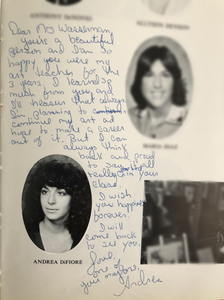 ANTHONY DeNOVIO
ALLYSON DENSON
Dear Ms Wassherman,
you're a beautiful
person and I'm so
happy you were my
art teacher for the
3 years. I learned so
much from you, and
I'll treasure that always.
I'm planning to
continue my art and
hope to make a career
out of it. But I can
always think
back and proud
to say it all
really in your
class.
I wish
you happiness
forever.
I will
come
back to
see you.
Love,
your
Andrea
MARIA DIAZ
ANDREA DiFIORE